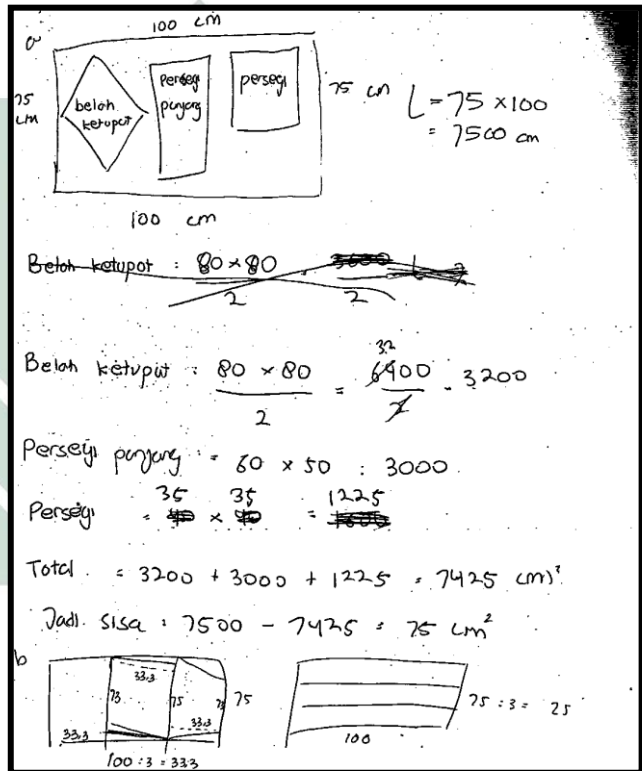 a
100 cm
75 cm
belah ketupat
persegi panjang
persegi
75 cm
L = 75 × 100
= 7500 cm
100 cm
Belah ketupat : 80 × 80
2
2
Belah ketupat : 80 × 80 / 2 = 6400 / 2 = 3200
32
Persegi panjang = 60 × 50 : 3000
Persegi = 35 × 35 = 1225
Total = 3200 + 3000 + 1225 = 7425 cm²
Jadi sisa : 7500 - 7425 = 75 cm²
b
33.3
73
75
73
75
33.3
33.3
100 : 3 = 333
75 : 3 = 25
100